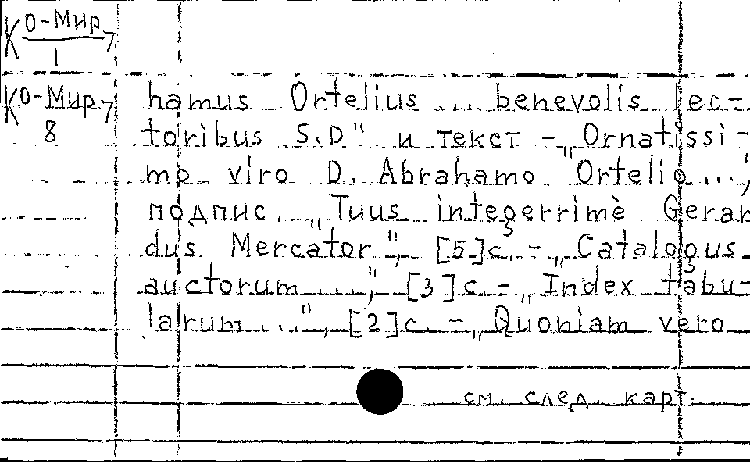 К О-Мир 7
1
К О-Мир 7
8
hamus Ortelius ... benevolis lec-
toribus S.D" и текст -„Ornatissi-
mo viro D. Abrahamo Ortelio...",
подпис. „Tuus integerrimè Gerar
dus Mercator", [5]с. -„Catalogus
auctorum ...", [3]с. -„Index tabu-
larum ...", [2]с. -„Quoniam vero
см. след. карт.